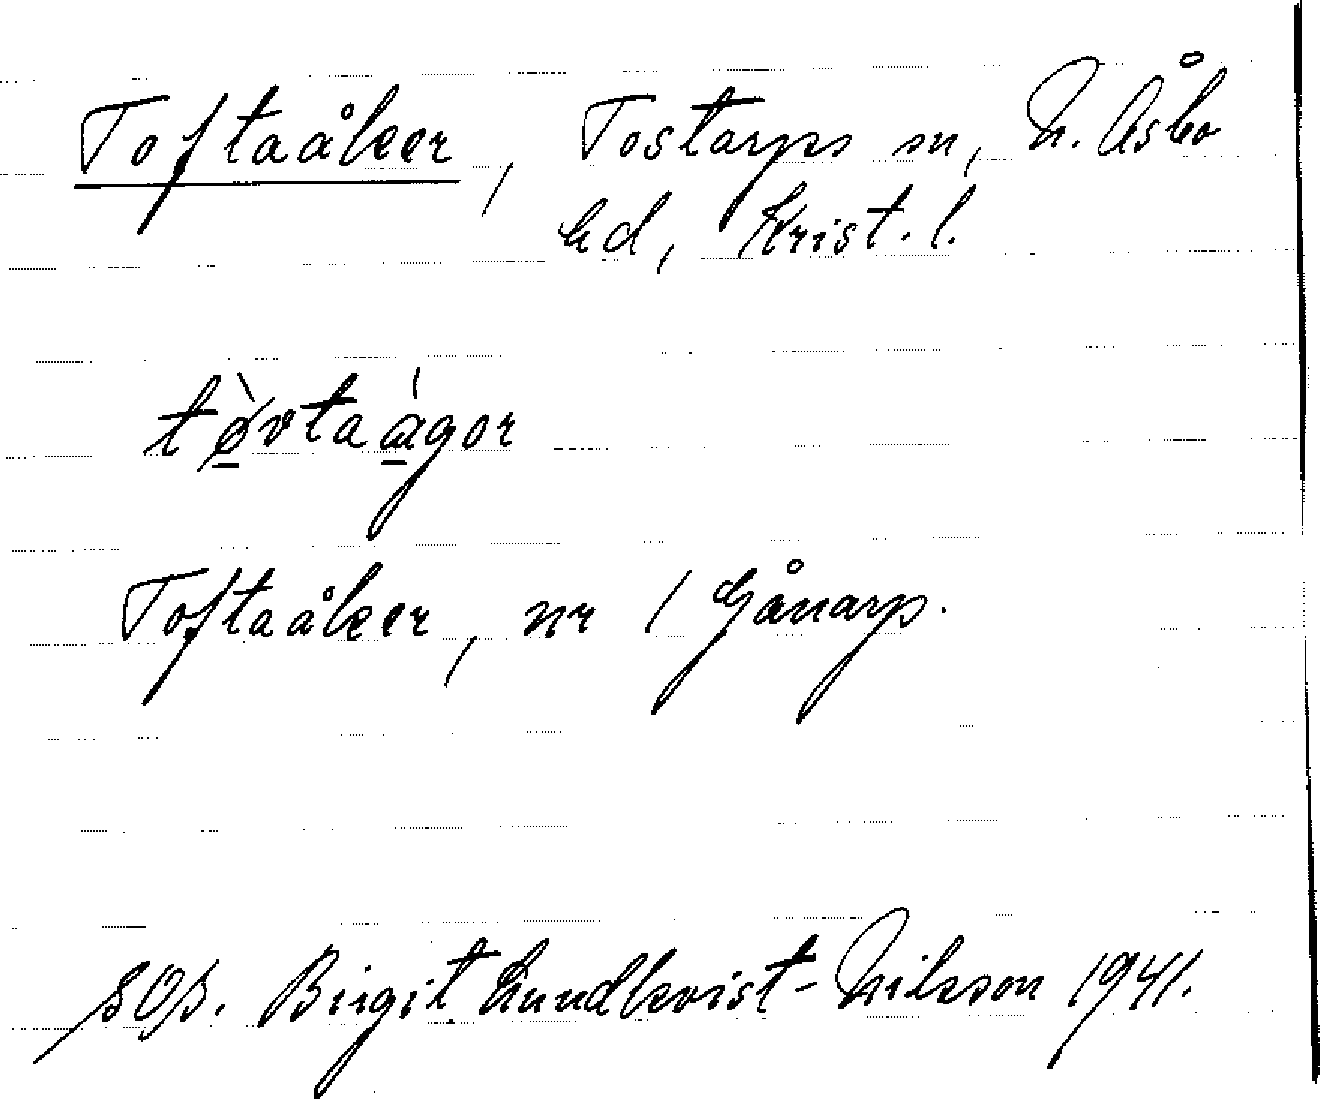 Toftaåker, Tostarps sn, N. Åsbo
hd, Krist. l.
tø̀vtaágor
Toftaåker, nr 1 Gånarp.
Birgit Lundkvist-Nilsson 1941.